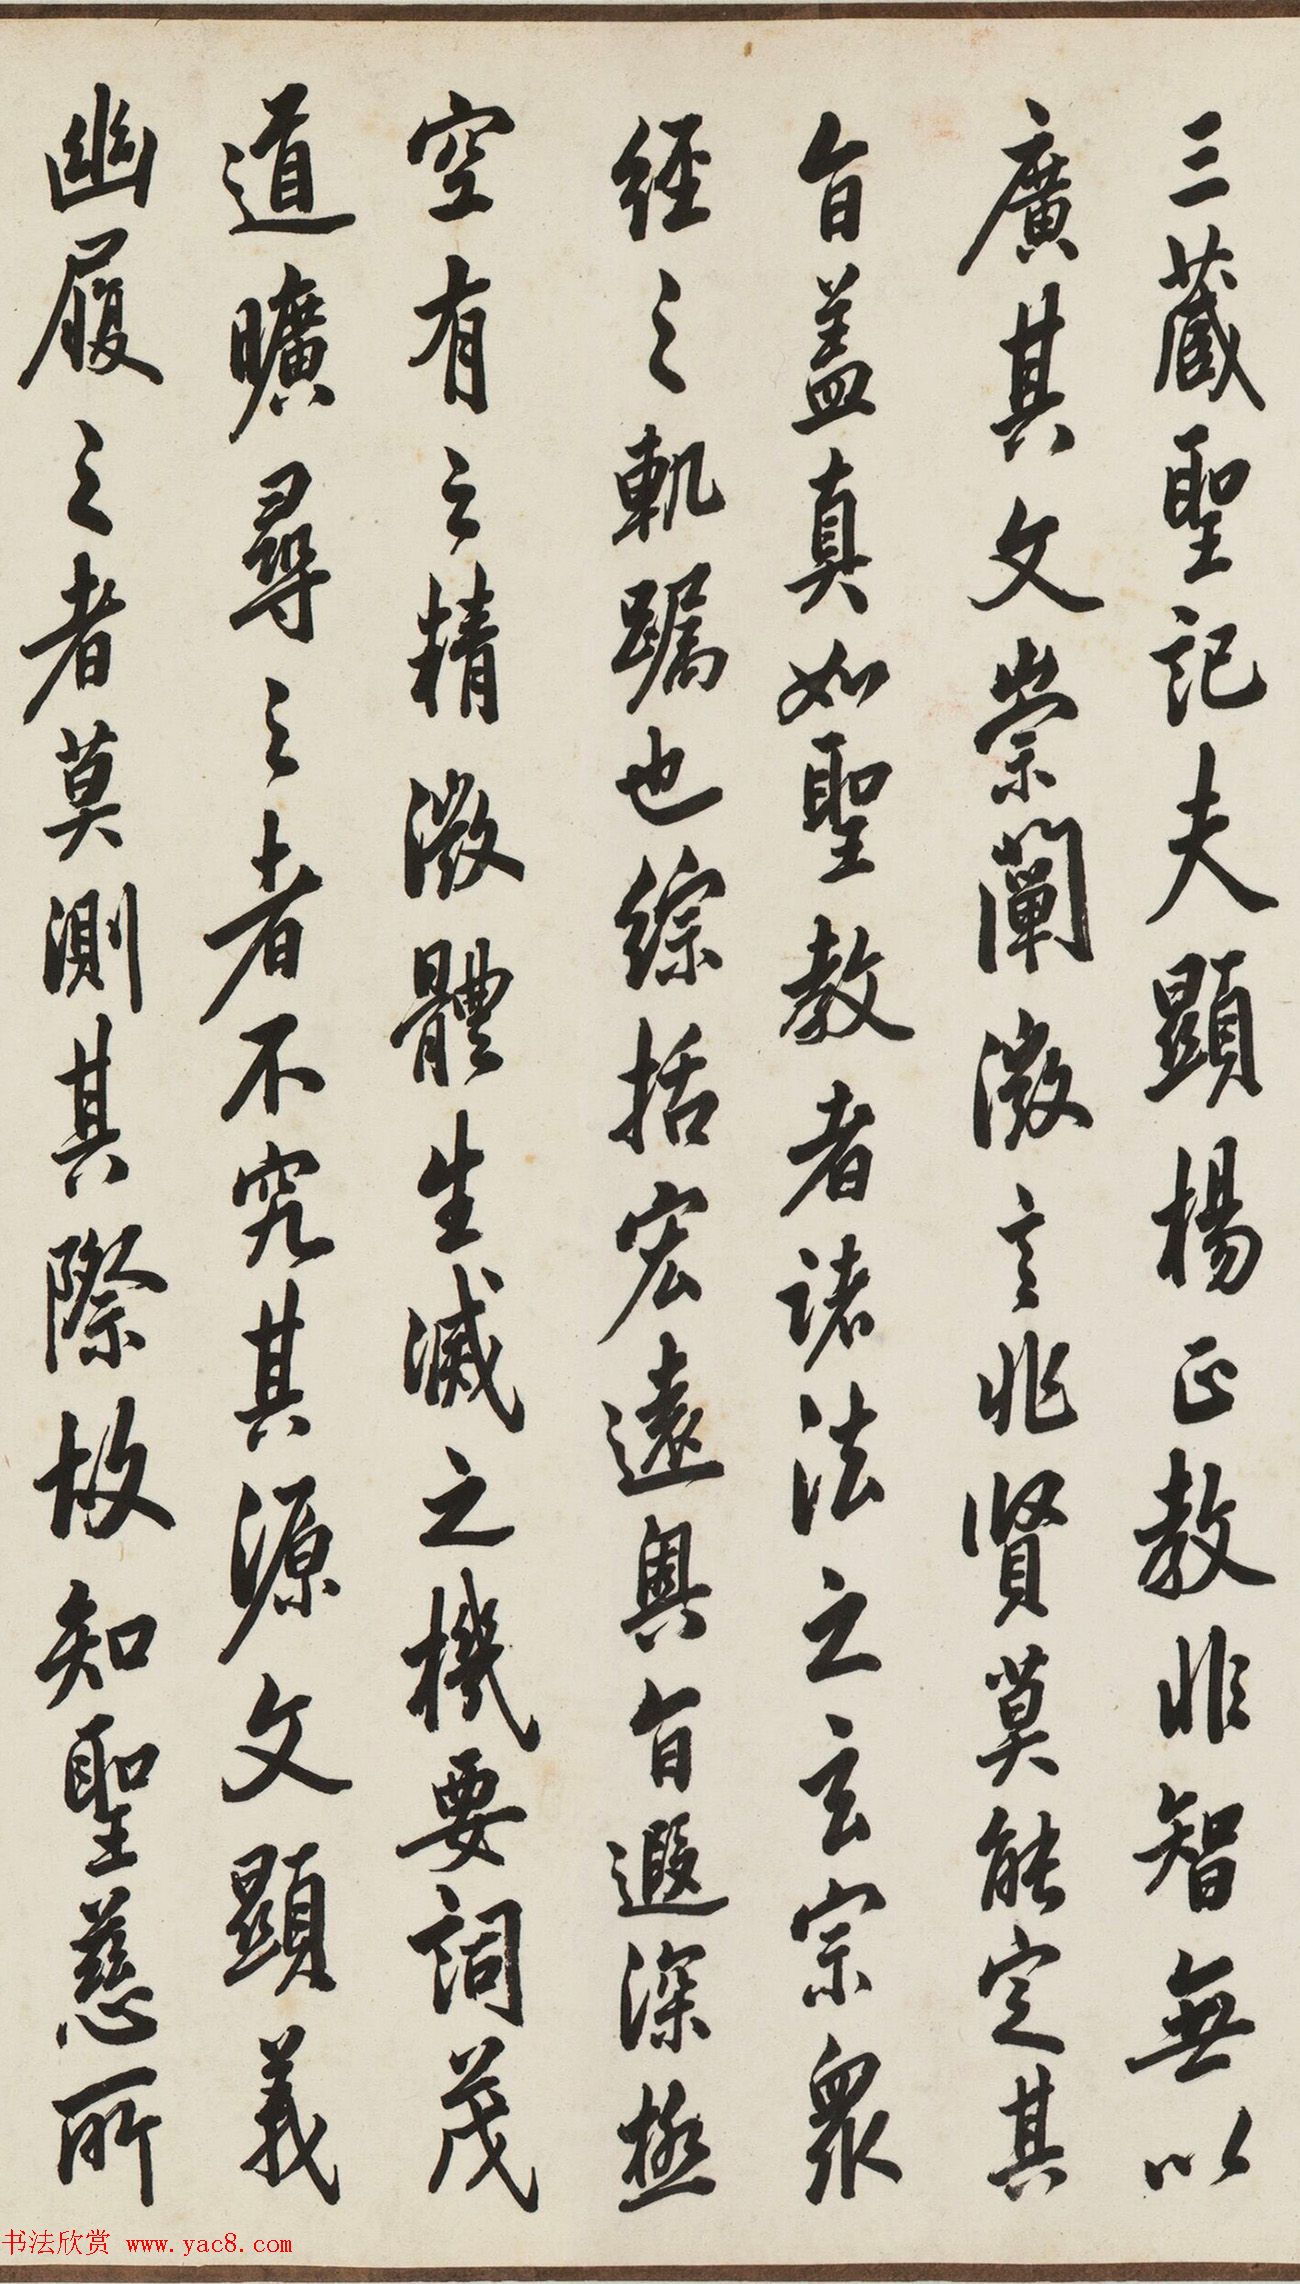 三藏聖記夫顯楊正教非智無以
廣其文崇闡微言非賢莫能定其
旨盖真如聖教者諸法之玄宗衆
經之軌躅也綜括宏遠奧旨遐深極
空有之精微體生滅之機要詞茂
道曠尋之者不究其源文顯義
幽履之者莫測其際故知聖慈所
书法欣赏 www.yac8.com